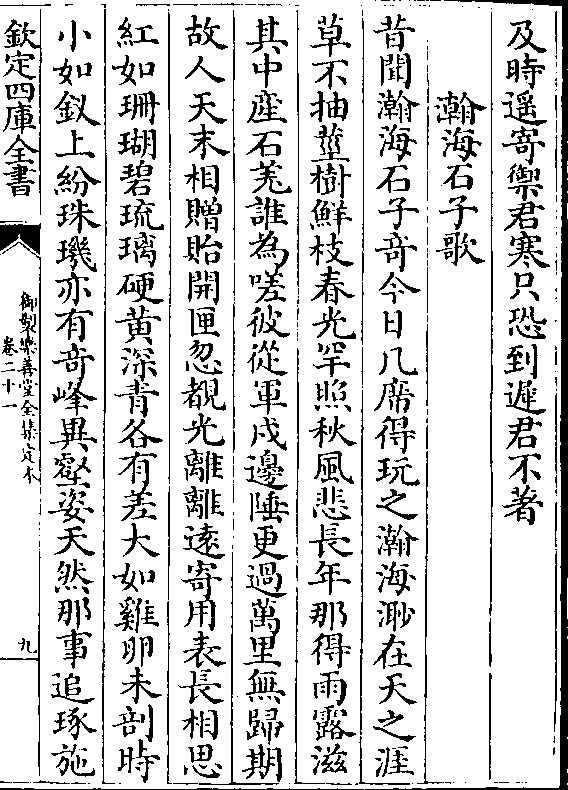 及時遥寄禦君寒只恐到遲君不著
瀚海石子歌
昔聞瀚海石子竒今日几席得玩之瀚海渺在天之涯
草不抽莖樹鮮枝春光罕照秋風悲長年那得雨露滋
其中産石羌誰為嗟彼從軍戍邊陲更過萬里無歸期
故人天末相贈貽開匣忽覩光離離逺寄用表長相思
紅如珊瑚碧琉璃硬黄深青各有差大如雞卵未剖時
小如釵上紛珠璣亦有竒峰異壑姿天然那事追琢施
欽定四庫全書
御製樂善堂全集定本
卷二十一
九